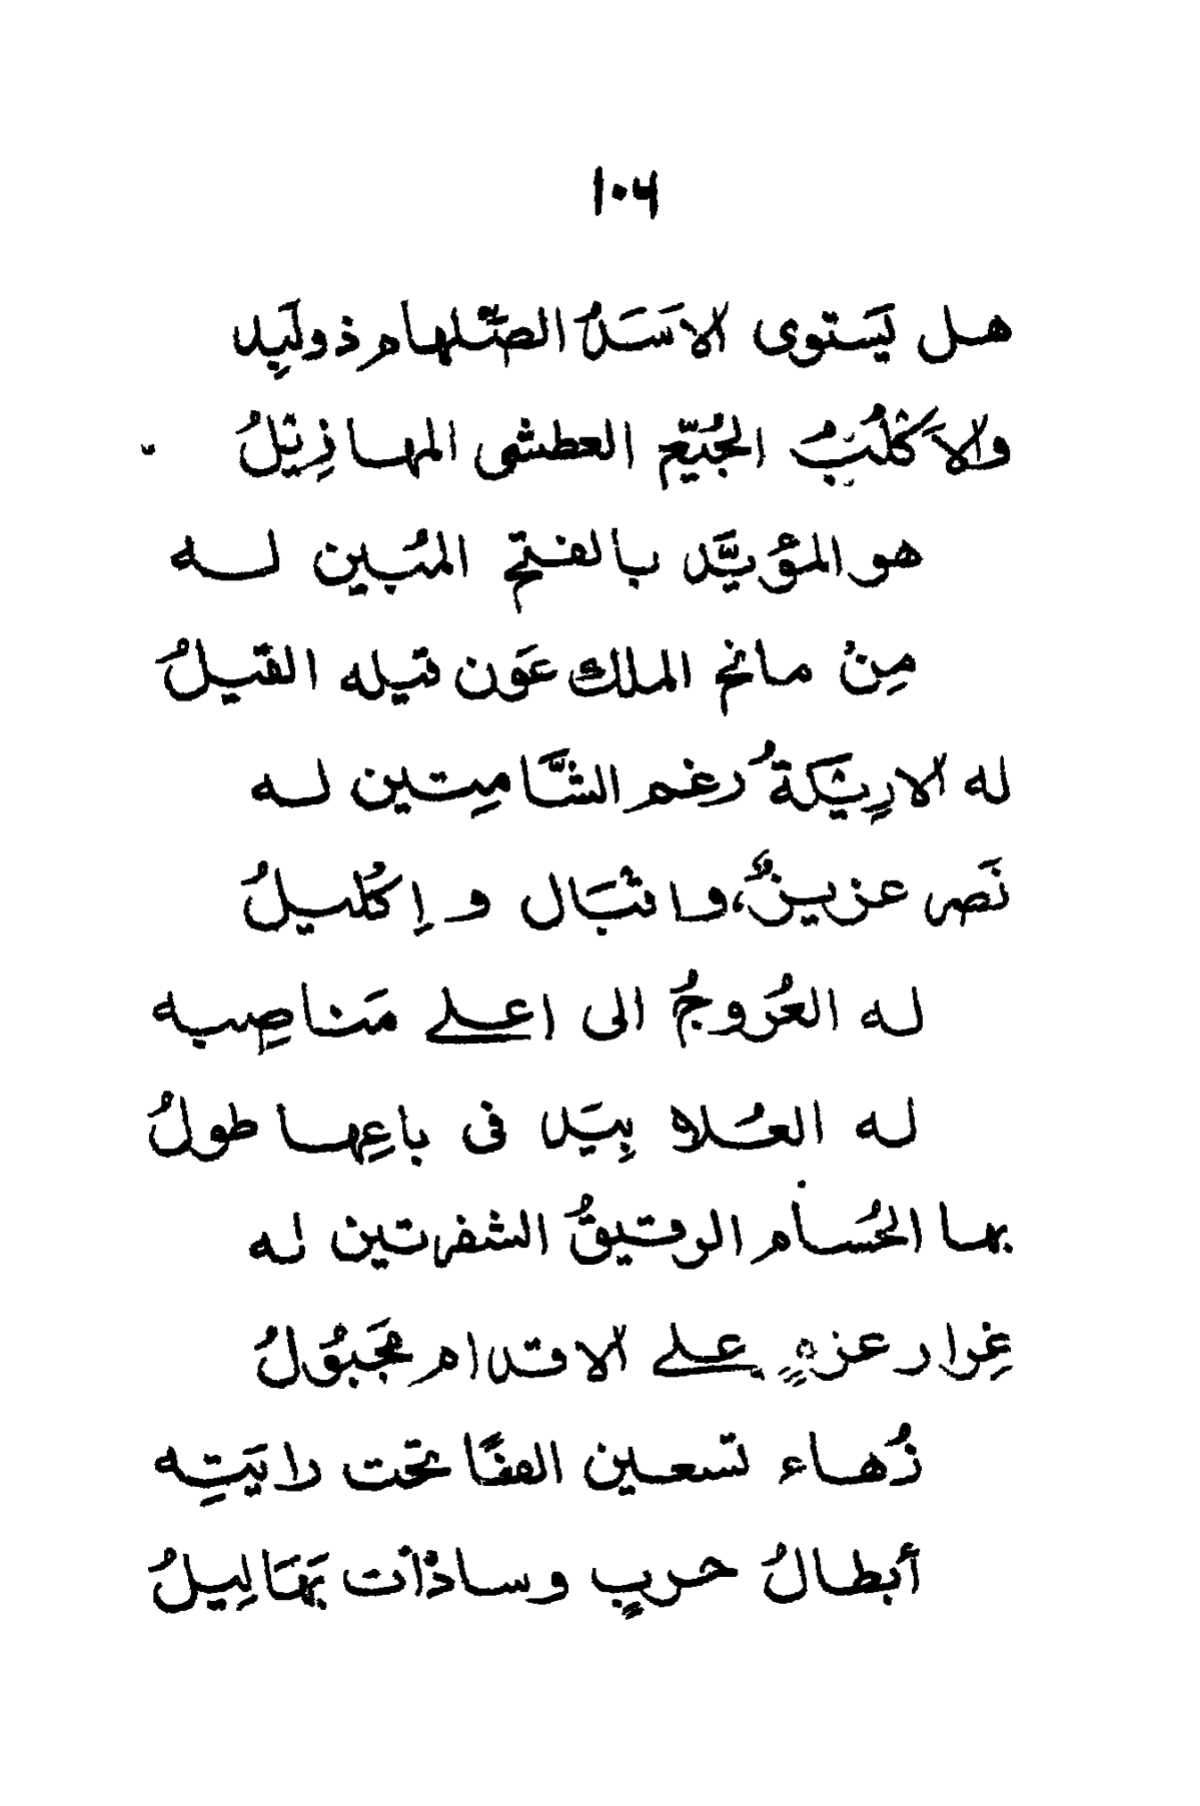 ١٠٦
هل يَستوى الاَسَدُ الضّلهام ذو لَبِد
والاَكْلُبُ الجُيّع العطشى المهازِيْلُ
هو المؤيَّد بالفتح المُبين له
مِنْ مانح الملك عَون قيله القَيلُ
له الارِيْكَةُ رغم الشَّامِتين له
نَصر عزيزٌ، واقْبَال و إكْليلُ
له العُروجُ الى اعلے مَناصِبه
له العُلاه بِيَد فى باعِها طولُ
بها الحُسام الرقيقُ الشفرتين له
غِرار عزمٍ علے الاقدام مَجبُولُ
زُهاء تسعين الفًا تحت رايَتِه
أبطالُ حربٍ وساداْت بَهَالِيلُ